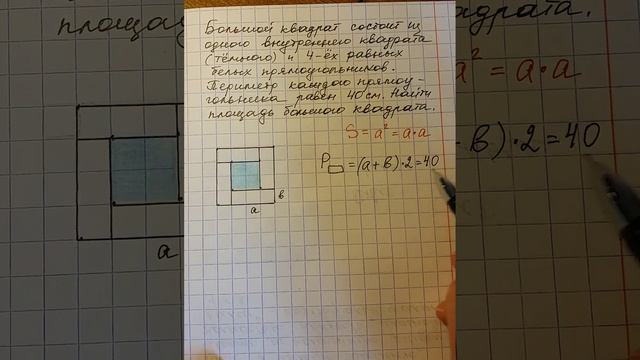 Большой квадрат состоит из
одного внутреннего квадрата
(тёмного) и 4-ёх равных
белых прямоугольников.
Периметр каждого прямоу-
гольника равен 40 см. Найти
площадь большого квадрата.
S = a² = a·a
P▭ = (a+в)·2=40
в
a
площад
рата.
a² = a·a
в)·2=40
a